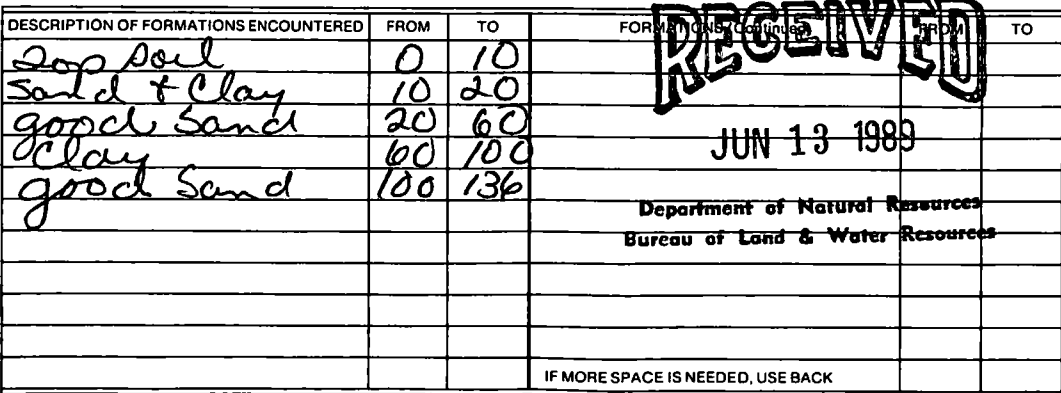 DESCRIPTION OF FORMATIONS ENCOUNTERED FROM TO FORMATIONS (Continued) FROM TO
RECEIVED
Top Soil 0 10
Sand & Clay 10 20
good Sand 20 60
Clay 60 100
good Sand 100 136
JUN 13 1989
Department of Natural Resources
Bureau of Land & Water Resources
IF MORE SPACE IS NEEDED, USE BACK